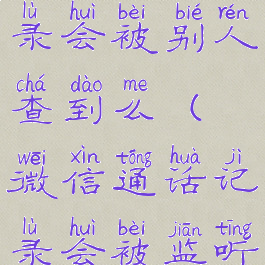 lù huì bèi bié rén
录会被别人
chá dào me
查到么（
wēi xìn tōng huà jì
微信通话记
lù huì bèi jiān tīng
录会被监听